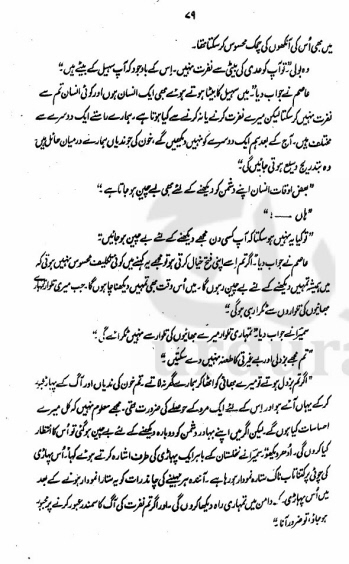 ۷۹
میں بھی اُس کی آنکھوں کی چمک محسوس کر سکتا تھا۔
وہ بولی "تو آپ کو عدی کی بیٹی سے نفرت نہیں۔ اس کے باوجود کہ آپ سہیل کے بیٹے ہیں"
عاصم نے جواب دیا "میں سہیل کا بیٹا ہوتے ہوئے بھی ایک انسان ہوں اور کوئی انسان تم سے
نفرت نہیں کر سکتا لیکن میرے نفرت کرنے یا نہ کرنے سے کیا ہوتا ہے، ہمارے راستے ایک دوسرے سے
مختلف ہیں۔ آج کے بعد ہم ایک دوسرے کو نہیں دیکھیں گے، خون کی جو ندیاں ہمارے درمیان حائل ہیں
وہ بتدریج وسیع ہوتی جائیں گی"
"بعض اوقات انسان اپنے دشمن کو دیکھنے کے لئے بھی بے چین ہو جاتا ہے"
"ہاں ——!"
"تو کیا یہ نہیں ہو سکتا کہ آپ کسی دن مجھے دیکھنے کے لئے بے چین ہو جائیں"
عاصم نے جواب دیا "اگر تم اسے اپنی فتح خیال کرتی ہو تو مجھے یہ کہنے میں کوئی تکلیف محسوس نہیں ہوتی کہ
میں ہمیشہ تمہیں دیکھنے کے لئے بے چین رہوں گا۔ میں اُس وقت بھی تمہیں دیکھنا چاہوں گا۔ جب میری تلوار تمہارے
بھائیوں کی تلواروں سے ٹکرا رہی ہوگی"
سمیرا نے جواب دیا "تمہاری تلوار میرے بھائیوں کی تلوار سے نہیں ٹکرائے گی"
"تم مجھے بزدلی اور بے غیرتی کا طعنہ نہیں دے سکتیں"
"اگر تم بزدل ہوتے تو میرے بھائی کو اٹھا کر ہمارے گھر نہ لاتے، تم خون کی ندیاں اور آگ کے پہاڑ عبور
کر کے یہاں آئے ہو اور اس کے لئے ایک مرد کے حوصلے کی ضرورت تھی۔ مجھے معلوم نہیں کہ کل میرے
احساسات کیا ہوں گے۔ لیکن اگر میں اپنے بہادر دشمن کو دوبارہ دیکھنے کے لئے بے چین ہو گئی تو اُس کا انتظار
کیا کروں گی۔ اُدھر دیکھو! سمیرا نے نخلستان کے باہر ایک پہاڑی کی طرف اشارہ کرتے ہوئے کہا "اُس پہاڑی
کی چوٹی پر کتنا تابناک ستارہ نمودار ہو رہا ہے۔ آئندہ ہر مہینے کی چاند رات کو یہ ستارا نمودار ہونے کے بعد
میں اُس پہاڑی کے دامن میں تمہاری راہ دیکھا کروں گی۔ اور اگر تم نفرت کی آگ کا سمندر عبور کرنے پر مجبور
ہو جاؤ، تو ضرور آنا"